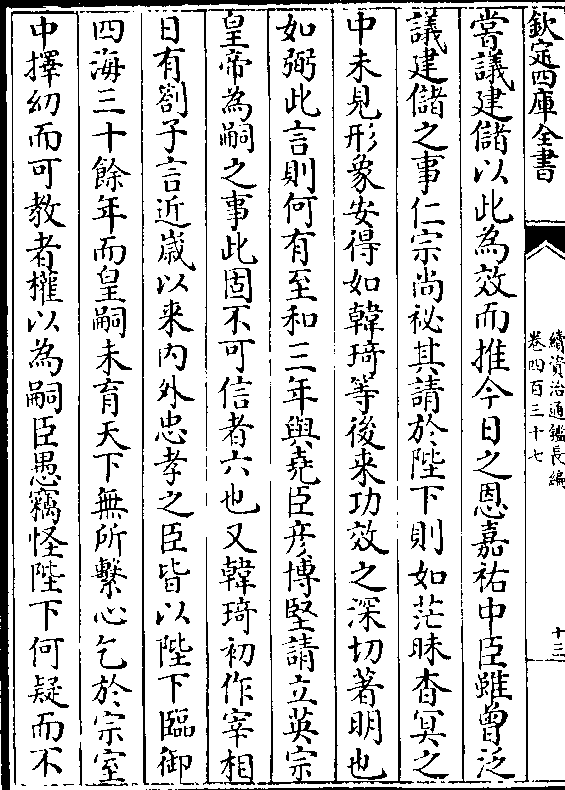 欽定四庫全書
續資治通鑑長編
卷四百三十七
十三
嘗議建儲以此為效而推今日之恩嘉祐中臣雖曾泛
議建儲之事仁宗尚祕其請於陛下則如茫昧杳冥之
中未見形象安得如韓琦等後来功效之深切著明也
如弼此言則何有至和三年與堯臣彦博堅請立英宗
皇帝為嗣之事此固不可信者六也又韓琦初作宰相
日有劄子言近嵗以来内外忠孝之臣皆以陛下臨御
四海三十餘年而皇嗣未育天下無所繫心乞於宗室
中擇幼而可教者權以為嗣臣愚竊怪陛下何疑而不